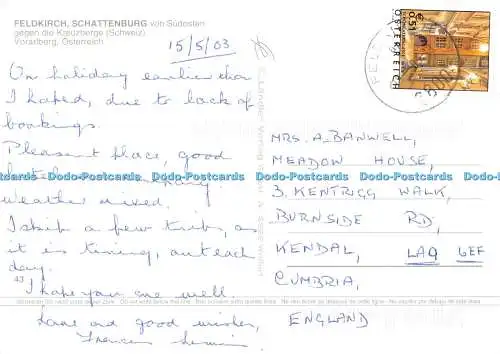 FELDKIRCH, SCHATTENBURG von Südosten
gegen die Kreuzberge (Schweiz)
Vorarlberg, Österreich
15/5/03
On holiday earlier than
I hoped, due to lack of
bookings.
Pleasant place, good
weather mixed.
I skip a few trips, as
it is tiring, out each
day.
43
I hope you are well.
Love and good wishes,
Frances
MRS. A. BANWELL,
MEADOW HOUSE,
3, KENTRIGG WALK,
BURNSIDE RD,
KENDAL, LA9 6EF
CUMBRIA,
ENGLAND
€ 0,51
ÖSTERREICH
Dodo-Postcards Dodo-Postcards Dodo-Postcards Dodo-Postcards